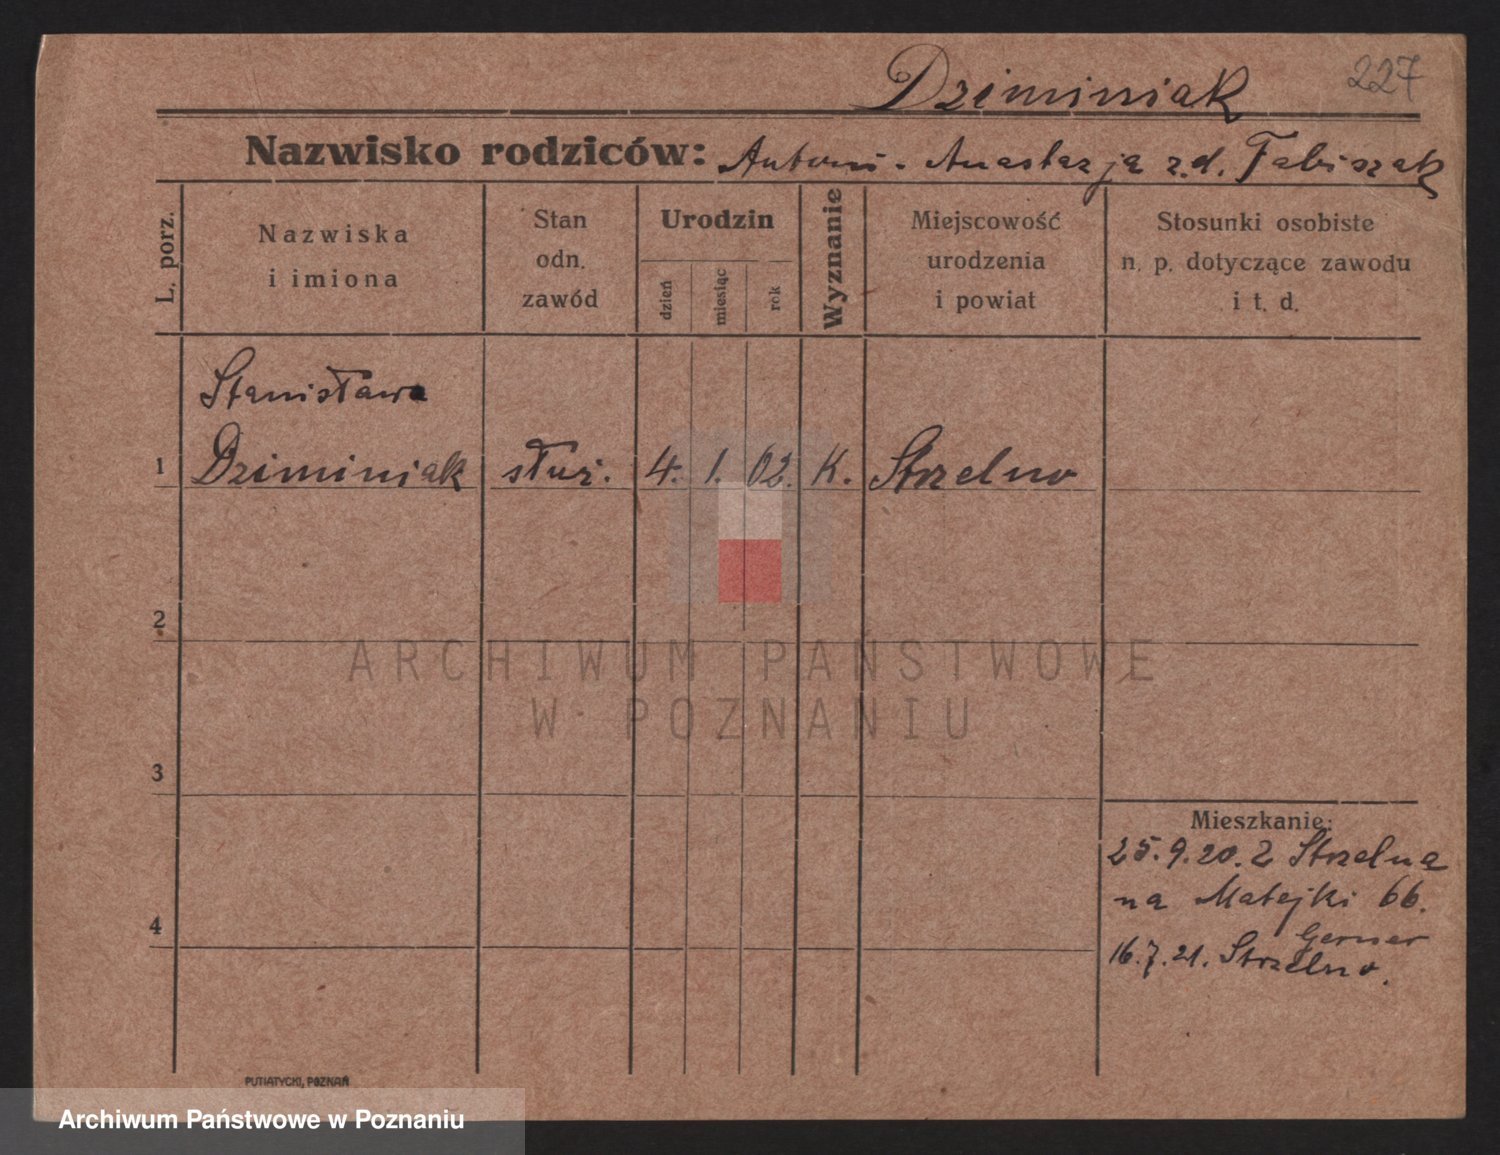 Dziminiak 227
Nazwisko rodziców: Antoni - Anastazja z.d. Fabiszak
L. porz.
Nazwiska
i imiona
Stan
odn.
zawód
Urodzin
dzień
miesiąc
rok
Wyznanie
Miejscowość
urodzenia
i powiat
Stosunki osobiste
n. p. dotyczące zawodu
i t. d.
Stanisława
1 Dziminiak służ. 4. 1. 02. K. Strzelno
2
3
4
Mieszkanie:
25.9.20. Z Strzelna
na Matejki 66.
Gerner
16.7.21. Strzelno.
ARCHIWUM PAŃSTWOWE
W POZNANIU
PUTIATYCKI, POZNAŃ
Archiwum Państwowe w Poznaniu